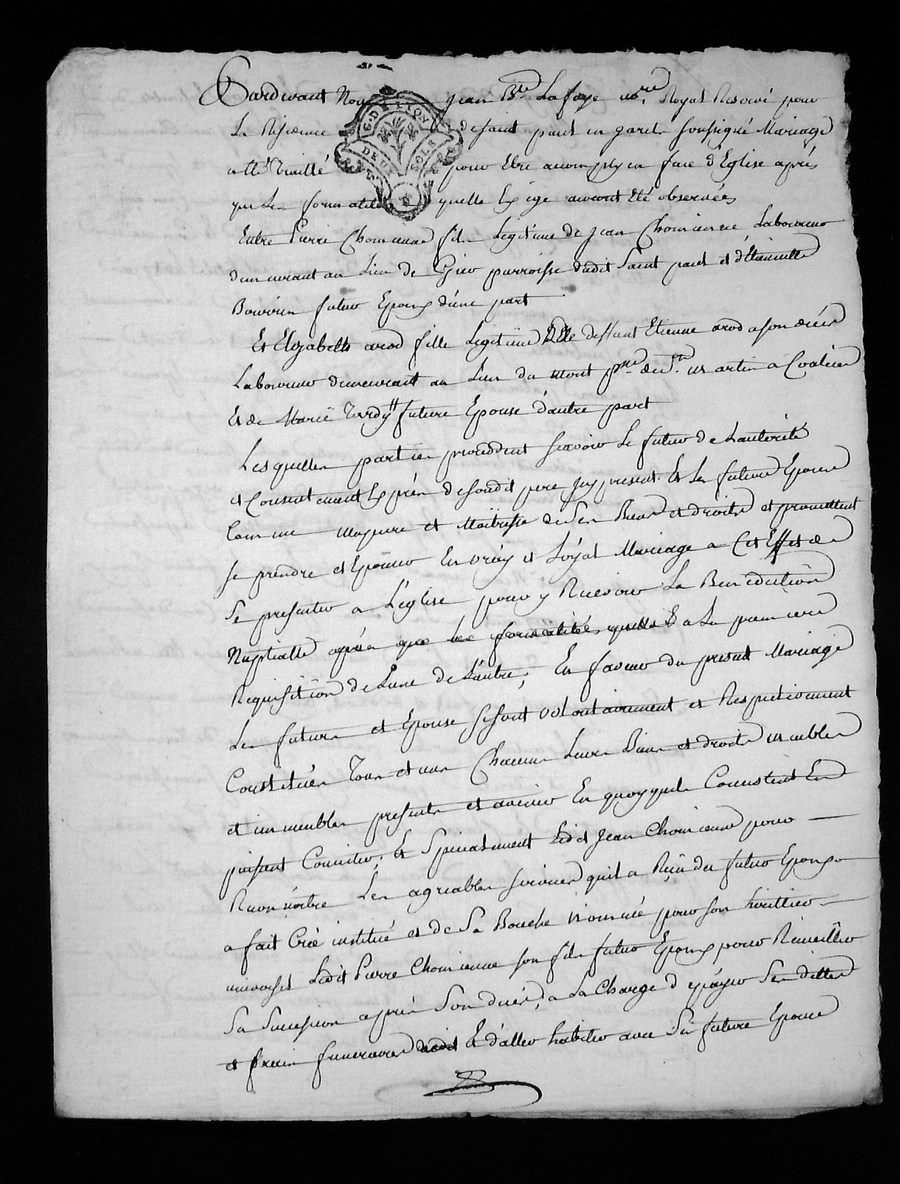 Pardevant Nou jean Bte Lafaye nre Royal Reservé pour
La Résidence de saint paul en jarest soussigné Mariage
a été traitté pour Etre accomply en face d'Eglise après
que les formalite quelle Exige auront été observées
G.D.LYON
DEUX SOLS
Entre Pierre Chomienne fils Legitime de Jean Chomienne Laboureur
demeurant au Lieu de parroisse dudit Saint paul et d'Etiennette
Bouvier futur Epoux d'une part
Et Elizabeth arod fille Legitime de deffunt Etienne arod a son décès
Laboureur demeurant au Lieu du mont prse de St martin a Coalieu
Et de Marie future Epouse d'autre part
Lesquelles parties procedent scavoir Le futur de Lautorité
et Consentement Exprès de sondit pere icy present. Et La future Epouse
Comme majeure et Maitresse de Ses Biens et droits et promettent
se prendre et Epouser En vray et Loyal Mariage a Cet Effet de
Se presenter a L'eglise pour y Recevoir La Benediction
Nuptialle après que les formalités quelle a La premiere
Requisition de L'une de L'autre; En faveur du present Mariage
Les futurs et Epouse se sont volontairement et Respectivement
Constitués Tous et uns Chacuns Leurs Biens et droits meubles
et immeubles presents et avenir En quoy quils Consistent Et
puissent Consister; Et Specialement Ledit Jean Chomienne pour
Reconnoitre Les agreables services quil a Reçu du futur Epoux
a fait Créé institué et de Sa Bouche Nommé pour son heritier
universel Ledit Pierre Chomienne son fils futur Epoux pour Recueillir
Sa Succession après Son décès, a La Charge d'Epayer Ses dettes
et fraix funeraires Et d'aller habiter avec Sa future Epouse